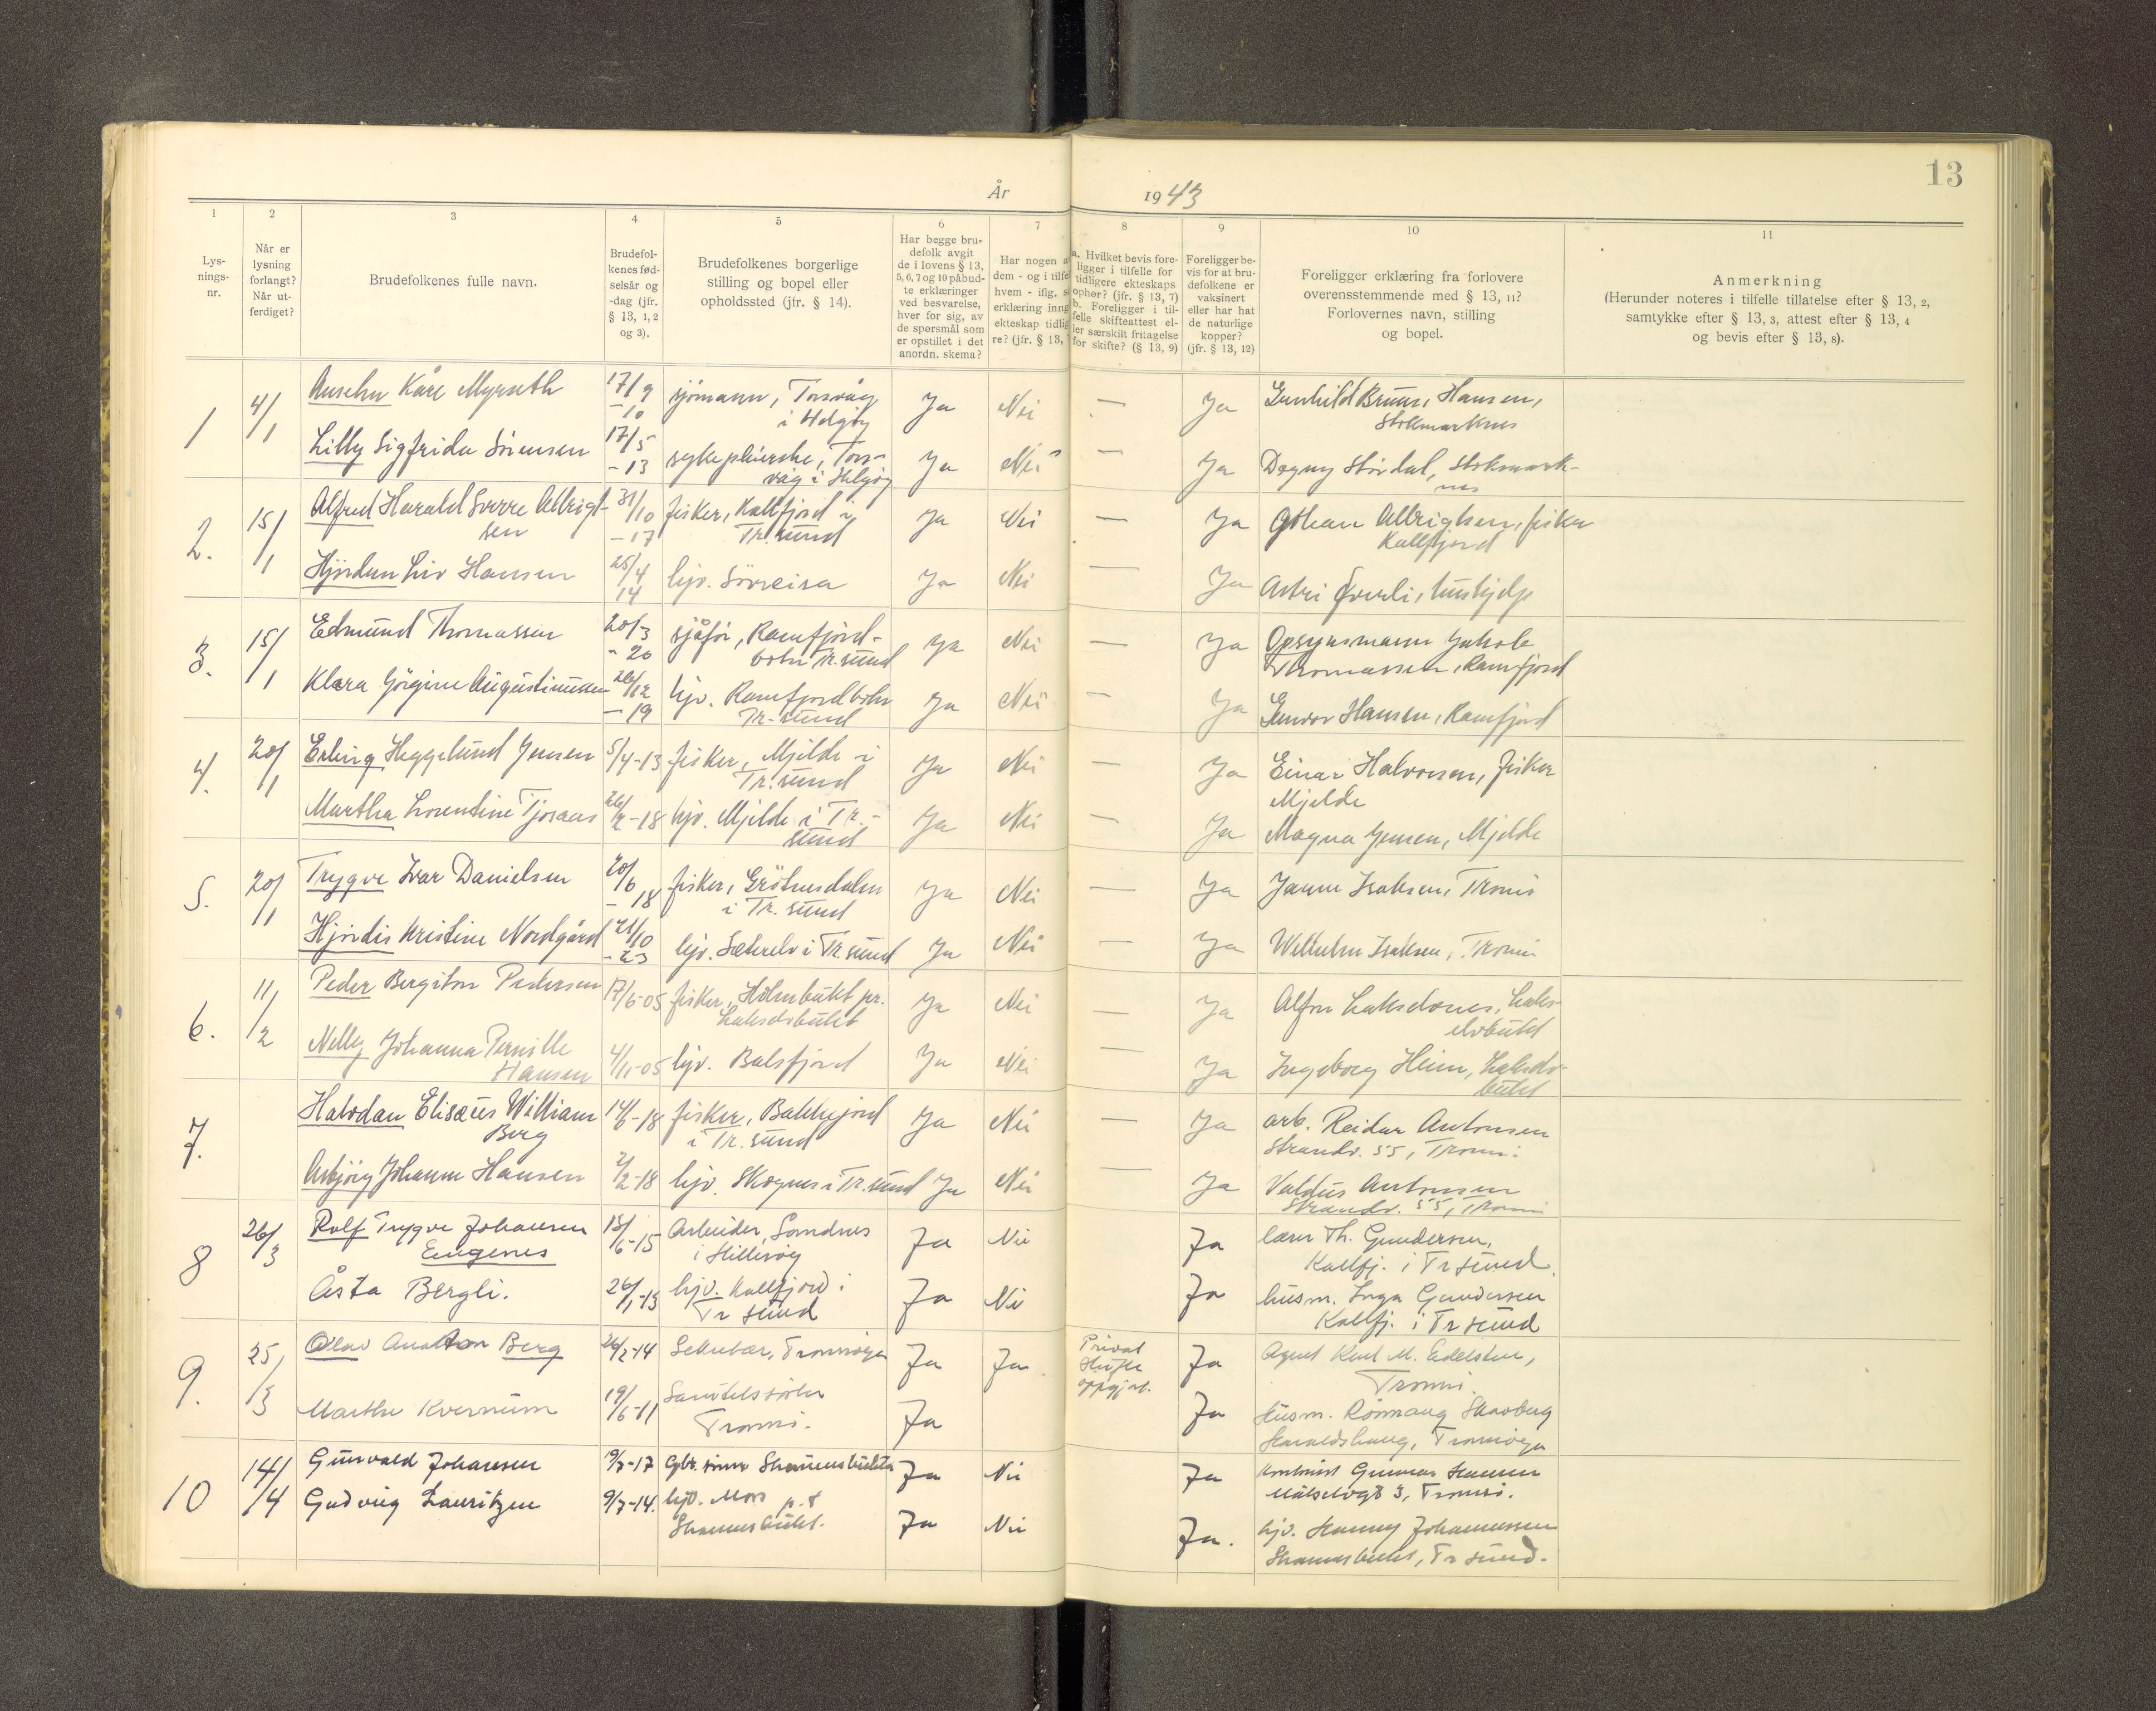 13
År 1943
1 2 3 4 5 6 7 8 9 10 11
Lys-
nings-
nr.
Når er
lysning
forlangt?
Når ut-
ferdiget?
Brudefolkenes fulle navn.
Brudefol-
kenes fød-
selsår og
-dag (jfr.
§ 13, 1, 2
og 3).
Brudefolkenes borgerlige
stilling og bopel eller
opholdssted (jfr. § 14).
Har begge bru-
defolk avgit
de i lovens § 13,
5, 6, 7 og 10 påbud-
te erklæringer
ved besvarelse,
hver for sig, av
de spørsmål som
er opstillet i det
anordn. skema?
Har nogen a
dem - og i tilfe
hvem - iflg. s
erklæring inng
ekteskap tidlig
re? (jfr. § 13,
a. Hvilket bevis fore-
ligger i tilfelle for
tidligere ekteskaps
ophør? (jfr. § 13, 7)
b. Foreligger i til-
felle skifteattest el-
ler særskilt fritagelse
for skifte? (§ 13, 9)
Foreligger be-
vis for at bru-
defolkene er
vaksinert
eller har hat
de naturlige
kopper?
(jfr. § 13, 12)
Foreligger erklæring fra forlovere
overensstemmende med § 13, 11?
Forlovernes navn, stilling
og bopel.
Anmerkning
(Herunder noteres i tilfelle tillatelse efter § 13, 2,
samtykke efter § 13, 3, attest efter § 13, 4
og bevis efter § 13, 8).
1 4/1 Anselm Kåre Myrseth 17/9 - 10 sjömann, Torsvåg i Helgöy Ja Nei — Ja Gunhild Bruun Hansen,
Stokmarknes
Lilly Sigfrida Sörensen 17/5 - 13 sykepleierske, Tors-
våg i Helgöy Ja Nei — Ja Dagny Stördal, Stokmark-
nes
2. 15/1 Alfred Harald Sverre Albrigt-
sen 31/10 - 17 fisker, Kallfjord i
Tr.sund Ja Nei — Ja Johan Albrigtsen, fisker
Kallfjord
Hjördun Liv Hansen 25/4 14 hjv. Sörreisa Ja Nei — Ja Astri Överli, hushjelp
3. 15/1 Edmund Thomassen 20/3 - 20 sjåför, Ramfjord-
botn Tr.sund Ja Nei — Ja Opsynsmann Jakob
Thomassen, Ramfjord
Klara Görgine Augustinussen 26/12 - 19 hjv. Ramfjordbotn
Tr.sund Ja Nei — Ja Gunvor Hansen, Ramfjord
4. 20/1 Erling Heggelund Jensen 5/4-13 fisker, Mjelde i
Tr.sund Ja Nei — Ja Einar Halvorsen, fisker
Mjelde
Martha Lorentine Tjoraas 26/2-18 hjv. Mjelde i Tr.-
sund Ja Nei — Ja Magna Jensen, Mjelde
5. 20/1 Trygve Ivar Danielsen 20/6 - 18 fisker, Grötnesdalen
i Tr.sund Ja Nei — Ja Janne Isaksen, Tromsö
Hjördis Kristine Nordgård 21/10 - 23 hjv. Sæterelv i Tr.sund Ja Nei — Ja Wilhelm Isaksen, Tromsö
6. 11/2 Peder Bergiton Pedersen 17/6-05 fisker, Holmbukt pr.
Lakselvbukt Ja Nei — Ja Alfon Lakselvnes, Laks-
elvbukt
Nelly Johanna Pernille
Hansen 4/11-05 hjv. Balsfjord Ja Nei — Ja Ingeborg Heim, Lakselv-
bukt
7. Halvdan Elisæus William
Berg 14/6-18 fisker, Bakkejord
i Tr.sund Ja Nei — Ja arb. Reidar Antonsen
Strandv. 55, Tromsö.
Asbjörg Johanne Hansen 2/2-18 hjv. Skognes i Tr.sund Ja Nei — Ja Valdus Antonsen
Strandv. 55, Tromsö
8 26/3 Rolf Trygve Johansen
Eugenes 15/6-15 Arbeider, Sandnes
i Hillesöy Ja Nei Ja lærer Th. Gundersen,
Kallfj. i Tr sund.
Åsta Bergli. 26/1-13 hjv. Kallfjord i
Tr sund Ja Nei Ja husm. Inga Gundersen
Kallfj. i Tr sund
9. 25/3 Olav Anathon Berg 26/2-14 Sekretær, Tromsöya Ja Ja. Privat
skifte
oppgjort. Ja Agent Karl M. Edelsten,
Tromsö.
Marthe Kvernum 19/6-11
Tromsö. Ja Ja Husm. Rönnaug Skavberg
Haraldshaug, Tromsöya
10 14/4 Gunvald Johansen 19/7-17 Gbr. sönn Skarmunkbukta Ja Nei Ja kontorist Gunnar Hansen
Målselvgt 3, Tromsö.
Gudvig Lauritzen 9/7-14. hjv. Mos p.t Ja Nei Ja. hjv. Hanny Johannessen
Tr sund.